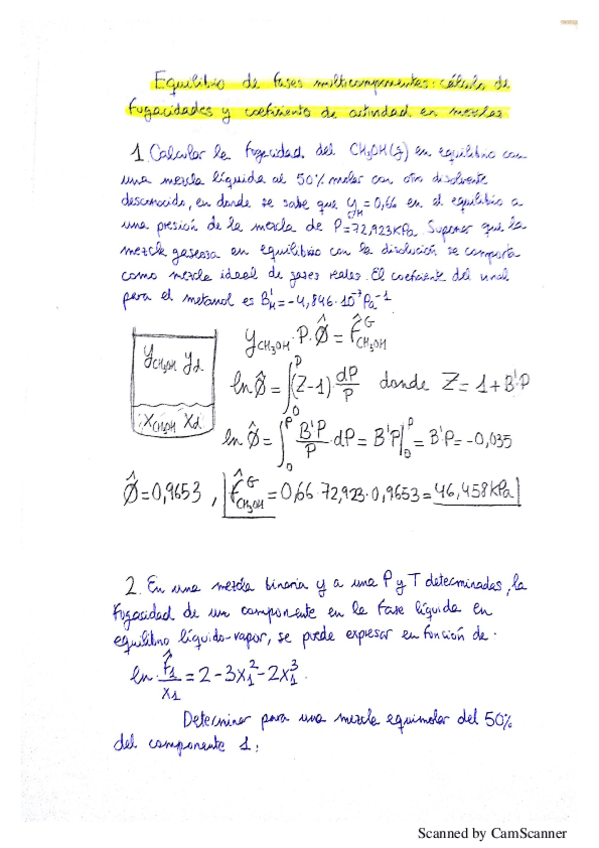 Equilibrio de fases multicomponentes: cálculo de
fugacidades y coeficiente de actividad en mezclas
1. Calcular la fugacidad del CH3OH(g) en equilibrio con
una mezcla líquida al 50% molar con otro disolvente
desconocido, en donde se sabe que yM = 0,66 en el equilibrio a
una presión de la mezcla de P=72,923KPa. Suponer que la
mezcla gaseosa en equilibrio con la disolución se comporta
como mezcla ideal de gases reales. El coeficiente del virial
para el metanol es B'M = -4,846·10⁻⁷Pa⁻¹
yCH3OH yd
xCH3OH xd
yCH3OH · P · Φ̂ = f̂ᴳCH3OH
ln Φ̂ = ∫₀ᴾ (Z-1) dP/P donde Z = 1 + B'P
ln Φ̂ = ∫₀ᴾ B'P/P · dP = B'P|₀ᴾ = B'P = -0,035
Φ̂ = 0,9653 , f̂ᴳCH3OH = 0,66 · 72,923 · 0,9653 = 46,458KPa
2. En una mezcla binaria y a una P y T determinadas, la
fugacidad de un componente en la fase líquida en
equilibrio líquido-vapor, se puede expresar en función de:
ln f̂1/x1 = 2 - 3x1² - 2x1³.
Determinar para una mezcla equimolar del 50%
del componente 1:
Scanned by CamScanner